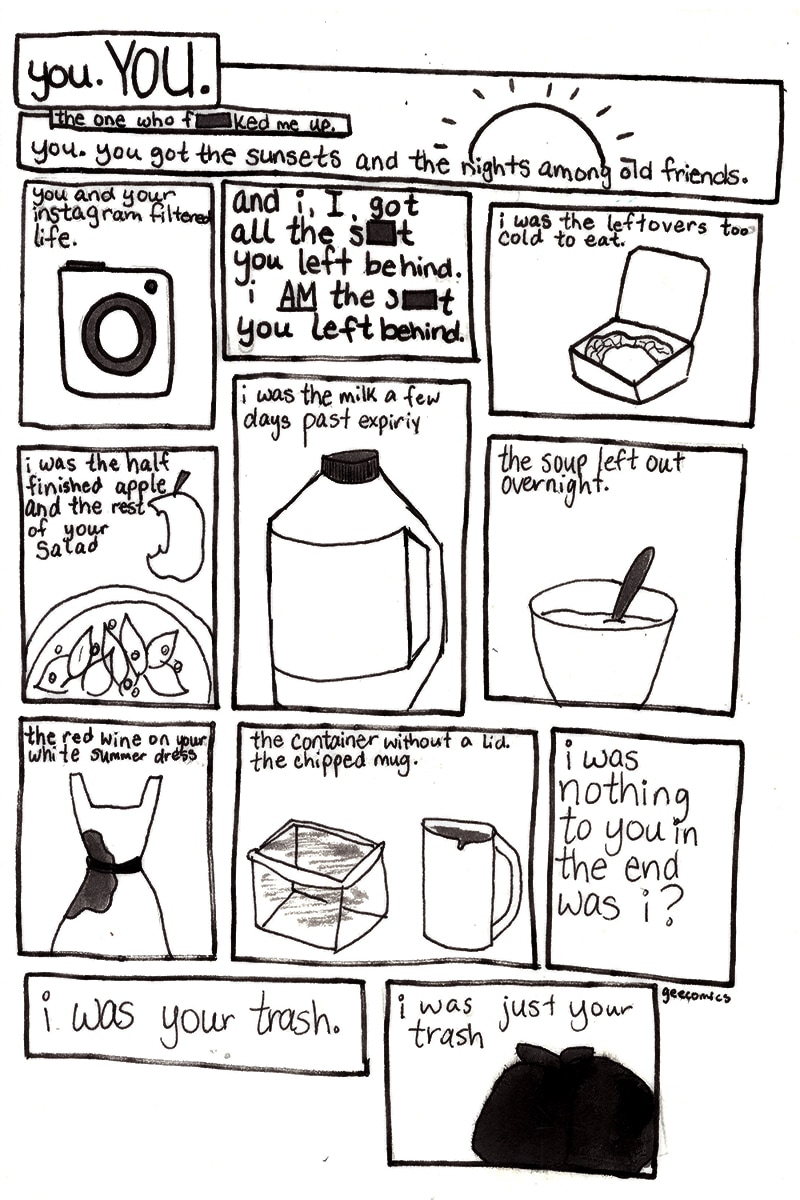 you. YOU.
the one who f██ked me up.
you. you got the sunsets and the nights among old friends.
you and your
instagram filtered
life.
and i, I, got
all the s█t
you left behind.
i AM the s█t
you left behind.
i was the leftovers too
cold to eat.
i was the half
finished apple
and the rest
of your
salad
i was the milk a few
days past expiriy
the soup left out
overnight.
the red wine on your
white summer dress
the container without a lid.
the chipped mug.
i was
nothing
to you in
the end
was i?
i was your trash.
i was just your
trash
geecomics